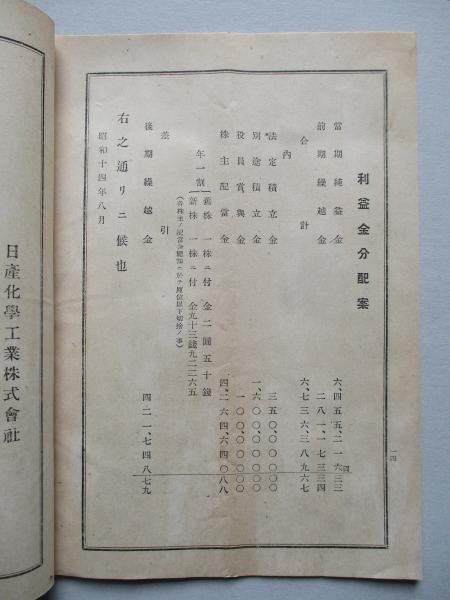 一四
利益金分配案
當期純益金 六、四五五、二一六 三三
前期繰越金 二八一、一七三 三四
合計 六、七三六、三八九 六七
內
法定積立金 三五〇、〇〇〇 〇〇
別途積立金 一、六〇〇、〇〇〇 〇〇
役員賞與金 一〇〇、〇〇〇 〇〇
株主配當金 四、二六四、六四〇 八八
年一割
舊株 一株ニ付 金二圓五十錢
新株 一株ニ付 金九十三錢九二二六五
(各株主ノ配當金總額ニ於テ厘位以下切捨ノ事)
差引
後期繰越金 四二一、七四八 七九
右之通リニ候也
昭和十四年八月
日產化學工業株式會社